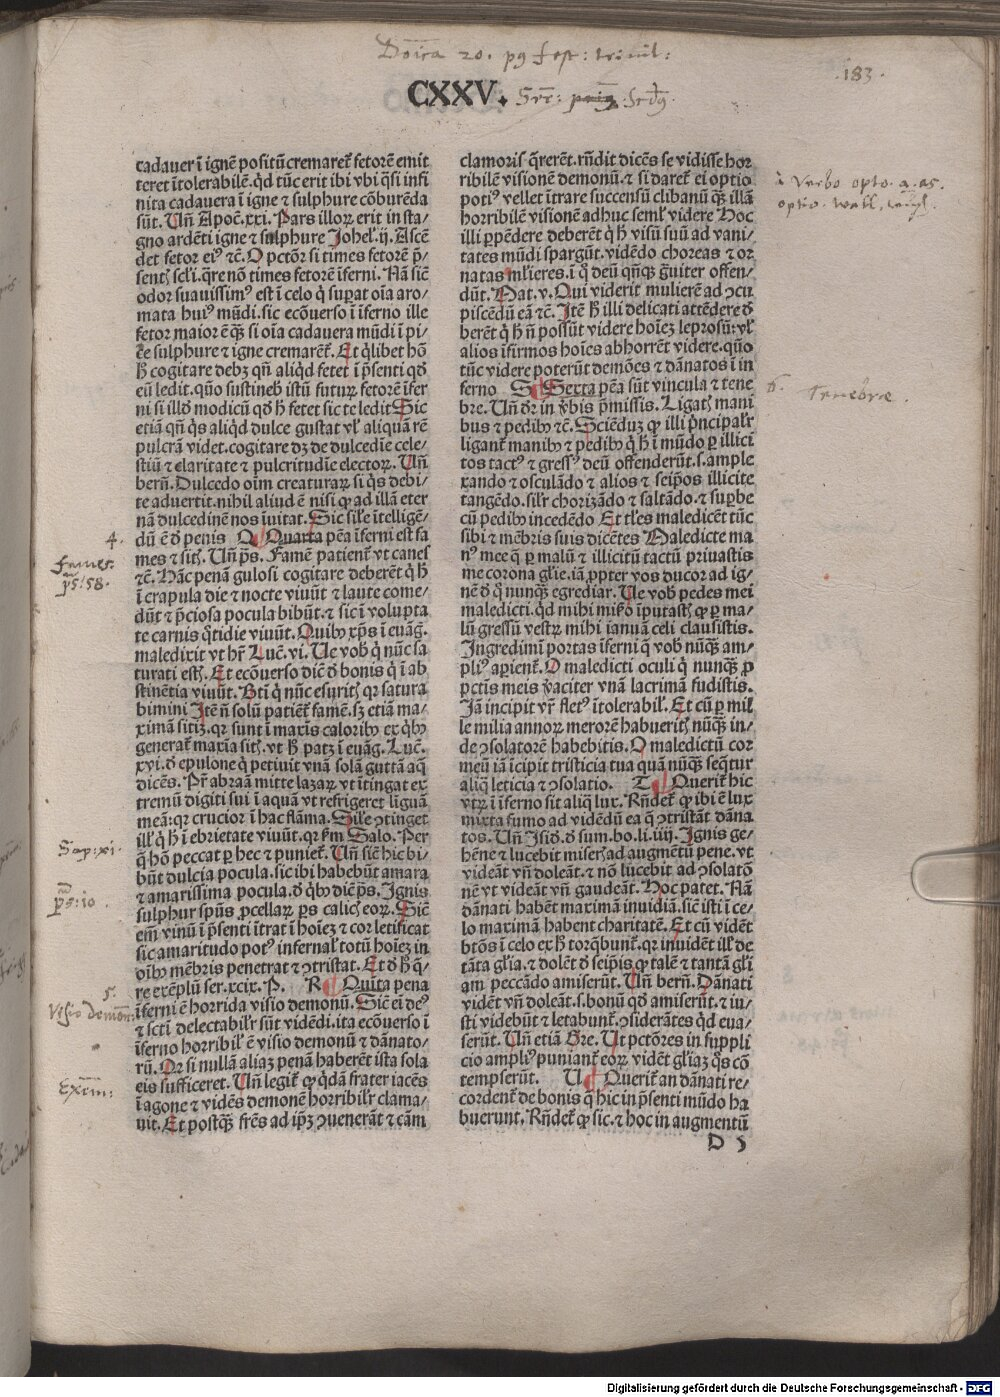 Dōīca 20. pꝰ fest: trinit:
CXXV.
183.
cadauer ī ignē positū cremaret᷑ fetorē emit
teret ītolerabilē. qͥd tūc erit ibi vbi qͣsi infi
nita cadauera ī igne ⁊ sulphure cōburēda
sūt. Uñ Apoc̄. xxi. Pars illoꝝ erit in sta/
gno ardēti igne ⁊ sulphure Johel̓. ij. Ascē
det fetor eiꝰ ⁊c̄. O pctōr si times fetorē p̄/
sentꝭ scl̓i. qͣre nō times fetorē īferni. Nā sic̄
odor suauissimꝰ est ī celo qͥ suꝑat oīa aro/
mata huiꝰ mūdi. sic ecōuerso ī īferno ille
fetor maior ē qꝫ̄ si oīa cadauera mūdi ī pi/
ce sulphure ⁊ igne cremarēt᷑. Et qͥlibet hō
ħ cogitare debꝫ qn̄ aliqͥd fetet ī p̄senti qd̓
eū ledit. quō sustineb̓ istū futuꝝ fetorē īfer
ni si illd̓ modicū qd̓ ħ fetet sic te ledit Sic
etiā qn̄ qͥs aliqͥd dulce gustat vl̓ aliquā rē
pulcrā videt. cogitare dꝫ de dulcedīe cele/
stiū ⁊ claritate ⁊ pulcritudīe electoꝝ. Uñ
berñ. Dulcedo oīm creaturaꝝ si qͥs debi/
te aduertit. nihil aliud ē nisi ꝙ ad illā eter
nā dulcedinē nos īuitat. Sic sil̓e ītelligē/
dū ē d̓ penis Q Quarta pēa īferni est fa
mes ⁊ sitꝭ. Uñ p̄s. Famē patient᷑ vt canes
⁊c̄. Hāc penā gulosi cogitare deberēt qͥ ħ
ī crapula die ⁊ nocte viuūt ⁊ laute come/
dūt ⁊ p̄ciosa pocula bibūt. ⁊ sic ī volupta
te carnis qͦtidie viuūt. Quibꝰ xp̄s ī euāḡ.
maledixit vt hr̄ Luc̄. vi. Ue vob̓ qͥ nūc sa
turati estꝭ. Et ecōuerso dic̄ d̓ bonis qͥ ī ab
stinētia viuūt. Bt̄i qͥ nūc esuritꝭ qꝛ satura
bimini Itē n̄ solū patiēt᷑ famē. sꝫ etiā ma/
ximā sitīꝫ. qꝛ sunt ī maxīs caloribꝰ ex qͥbꝰ
generat᷑ maxīa sitꝭ. vt ħ patꝫ ī euāḡ. Luc̄.
xvi. d̓ epulone qͥ petiuit vnā solā guttā aq̄
dicēs. Pr̄ abraā mitte lazaꝝ vt ītingat ex
tremū digiti sui ī aquā vt refrigeret līguā
meā: qꝛ crucior ī hac flāma. Sil̓e ↄtinget
ill̓ qͥ ħ ī ebrietate viuūt. qꝛ ẜm Salo. Per
q̄ hō peccat ꝑ hec ⁊ puniet᷑. Uñ sic̄ hic bi/
būt dulcia pocula. sic ibi habebūt amara
⁊ amarissima pocula. d̓ qͥbꝰ dic̄ p̄s. Ignis
sulphur spūs ꝓcellaꝝ ꝑs calicꝭ eoꝝ. Sic̄
em̄ vinū ī p̄senti ītrat ī hoīeꝫ ⁊ cor letificat
sic amaritudo potꝰ infernal̓ totū hoīeꝫ in
oībꝰ mēbris penetrat ⁊ ↄtristat. Et d̓ ħ qͣ/
re exēplū ser. xcix. P. R Quīta pena
īferni ē horrida visio demonū. Sic̄ ei deꝰ
⁊ sctī delectabil̓r sūt vidēdi. ita ecōuerso ī
īferno horribil̓ ē visio demonū ⁊ dānato/
rū. Or si nullā aliaꝫ penā haberēt ista sola
eis sufficeret. Uñ legit᷑ ꝙ qͥdā frater iacēs
ī agone ⁊ vidēs demonē horribil̓r clama/
uit. Et postqꝫ̄ fr̄es ad ip̄ꝫ ↄuenerāt ⁊ cām
clamoris qͣrerēt. rn̄dit dicēs se vidisse hor
ribilē visionē demonū. ⁊ si daret᷑ ei optio
potiꝰ vellet ītrare succensū clibanū qꝫ̄ illā
horribilē visionē adhuc semł videre Hoc
illi ꝑpēdere deberēt qͥ ħ visū suū ad vani/
tates mūdi spargūt. vidēdo choreas ⁊ or
natas mł̓ieres. ī qͥ deū qn̄qꝫ gͣuiter offen/
dūt. Mat. v. Qui viderit mulierē ad ↄcu
piscēdū eā ⁊c̄. Itē ħ illi delicati attēdere d̓
berēt qͥ ħ n̄ possūt videre hoīeꝫ leprosū: vl̓
alios īfirmos hoīes abhorrēt videre. quō
tūc videre poterūt demōes ⁊ dānatos ī in
ferno S Sexta pēa sūt vincula ⁊ tene
bre. Uñ dr̄ in v̓bis p̄missis. Ligatꝭ mani
bus ⁊ pedibꝰ ⁊c̄. Sciēduꝫ ꝙ illi pͥncipal̓r
ligant᷑ manibꝰ ⁊ pedibꝰ qͥ ħ ī mūdo ꝑ illici
tos tactꝰ ⁊ gressꝰ deū offenderūt. s. ample
xando ⁊ osculādo ⁊ alios ⁊ seip̄os illicite
tangēdo. sil̓r chorizādo ⁊ saltādo. ⁊ suꝑbe
cū pedibꝰ incedēdo Et tl̓es maledicēt tūc
sibi ⁊ mēbris suis dicētes Maledicte ma
nꝰ mee q̄ ꝑ malū ⁊ illicitū tactū priuastis
me corona gl̓ie. iā ꝓpter vos ducor ad ig/
nē d̓ qͦ nunqꝫ̄ egrediar. Ue vob̓ pedes mei
maledicti. qd̓ mihi mīẜo īputastꝭ ꝙ ꝑ ma/
lū gressū vestꝝ mihi ianuā celi clausistis.
Ingredimī portas īferni q̄ vob̓ nūqꝫ̄ am/
pliꝰ aꝑient᷑. O maledicti oculi qͥ nunqꝫ̄ ꝓ
pctīs meis v̓aciter vnā lacrimā fudistis.
Iā incipit vr̄ fletꝰ ītolerabil̓. Et cū ꝑ mil
le milia annoꝝ merorē habueritꝭ nūqꝫ̄ in/
de ↄsolatorē habebitis. O maledictū cor
meū iā īcipit tristicia tua quā nūqꝫ̄ seqͣtur
aliq̄ leticia ⁊ ↄsolatio. T Querit᷑ hic
vtꝝ ī īferno sit aliq̄ lux. Rn̄det᷑ ꝙ ibi ē lux
mixta fumo ad vidēdū ea q̄ ↄtristāt dāna
tos. Uñ Isid̓. d̓ sum. bo. li. iiij. Ignis ge/
hēne ⁊ lucebit miserꝭ ad augmētū pene. vt
videāt vn̄ doleāt. ⁊ nō lucebit ad ↄsolatō
nē vt videāt vn̄ gaudeāt. Hoc patet. Nā
dānati habēt maximā inuidiā. sic̄ isti ī ce/
lo maximā habent charitatē. Et cū vidēt
btōs ī celo ex ħ torqͣbunt᷑. qꝛ inuidēt ill̓ de
tāta gl̓ia. ⁊ dolēt d̓ seip̄is qͥ talē ⁊ tantā gl̓i
am peccādo amiserūt. Uñ berñ. Dānati
vidēt vn̄ doleāt. s. bonū qd̓ amiserūt. ⁊ iu/
sti videbūt ⁊ letabunt᷑. ↄsiderātes qd̓ eua/
serūt. Uñ etiā Gre. Ut pctōres in suppli
cio ampliꝰ puniant᷑ eoꝝ vidēt gl̓iaꝫ qͦs cō
tempserūt. U Querit᷑ an dānati re/
cordent᷑ de bonis q̄ hic in p̄senti mūdo ha
buerunt. Rn̄det᷑ ꝙ sic. ⁊ hoc in augmentū
D 5
4.
Fames.
ps: 58.
Sap: xi.
ps: 10.
5.
Visio demonū:
Exm:
6.
Tenebræ.
Digitalisierung gefördert durch die Deutsche Forschungsgemeinschaft - DFG